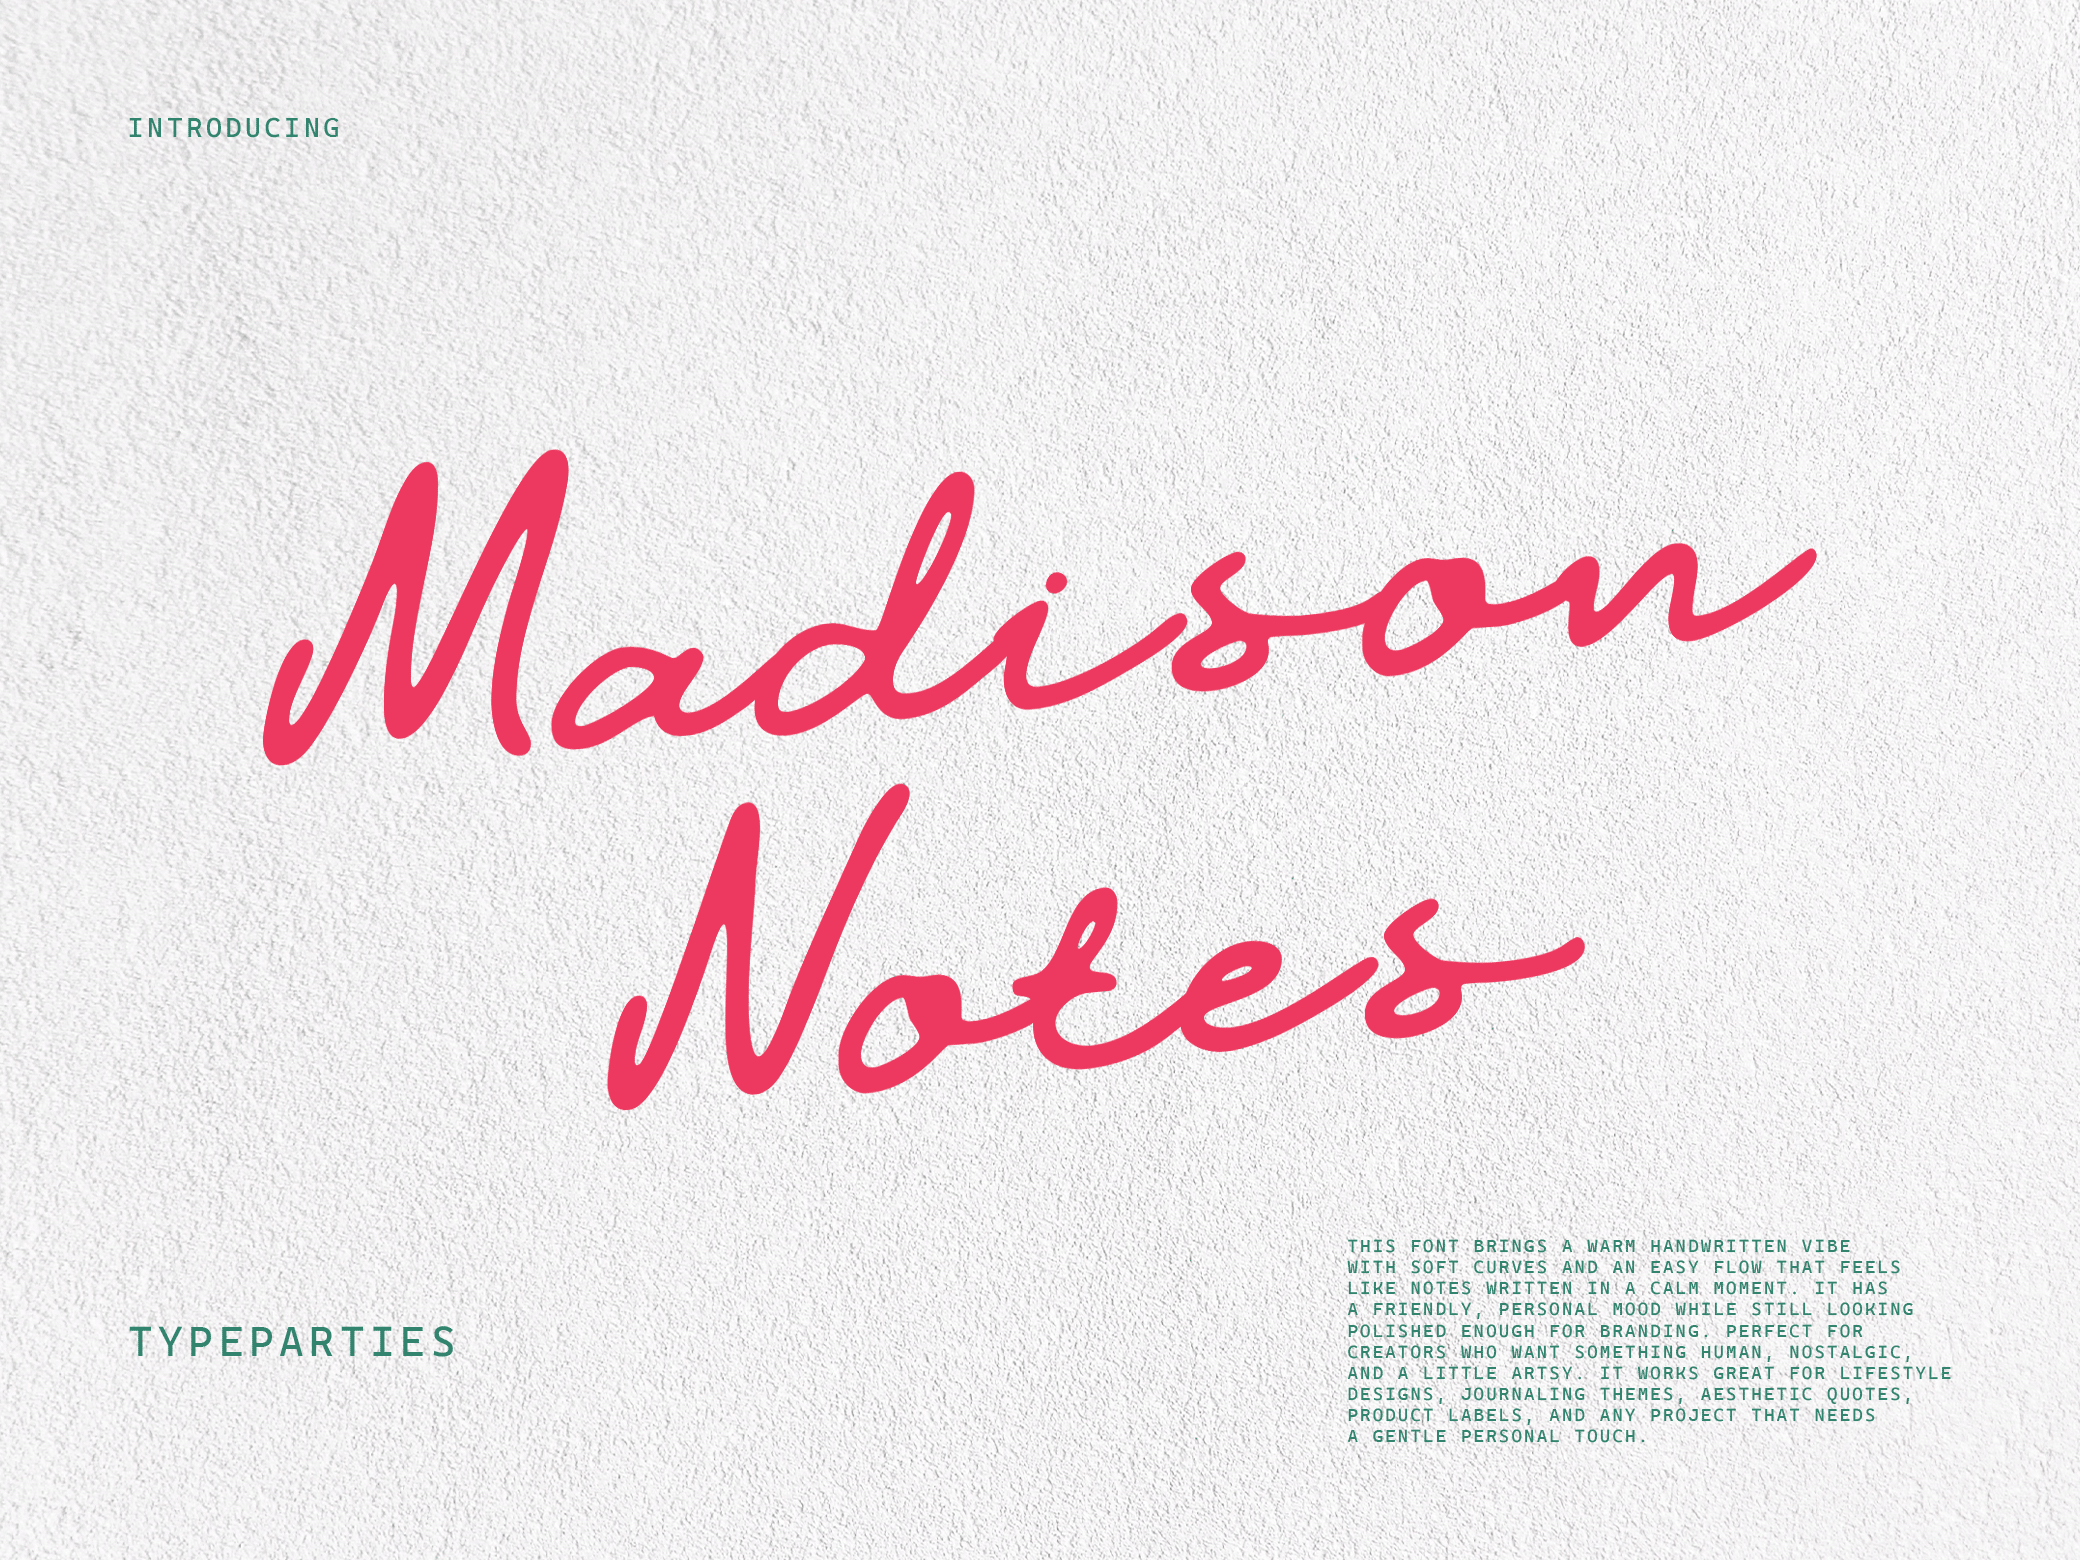 INTRODUCING
Madison
Notes
TYPEPARTIES
THIS FONT BRINGS A WARM HANDWRITTEN VIBE
WITH SOFT CURVES AND AN EASY FLOW THAT FEELS
LIKE NOTES WRITTEN IN A CALM MOMENT. IT HAS
A FRIENDLY, PERSONAL MOOD WHILE STILL LOOKING
POLISHED ENOUGH FOR BRANDING. PERFECT FOR
CREATORS WHO WANT SOMETHING HUMAN, NOSTALGIC,
AND A LITTLE ARTSY. IT WORKS GREAT FOR LIFESTYLE
DESIGNS, JOURNALING THEMES, AESTHETIC QUOTES,
PRODUCT LABELS, AND ANY PROJECT THAT NEEDS
A GENTLE PERSONAL TOUCH.